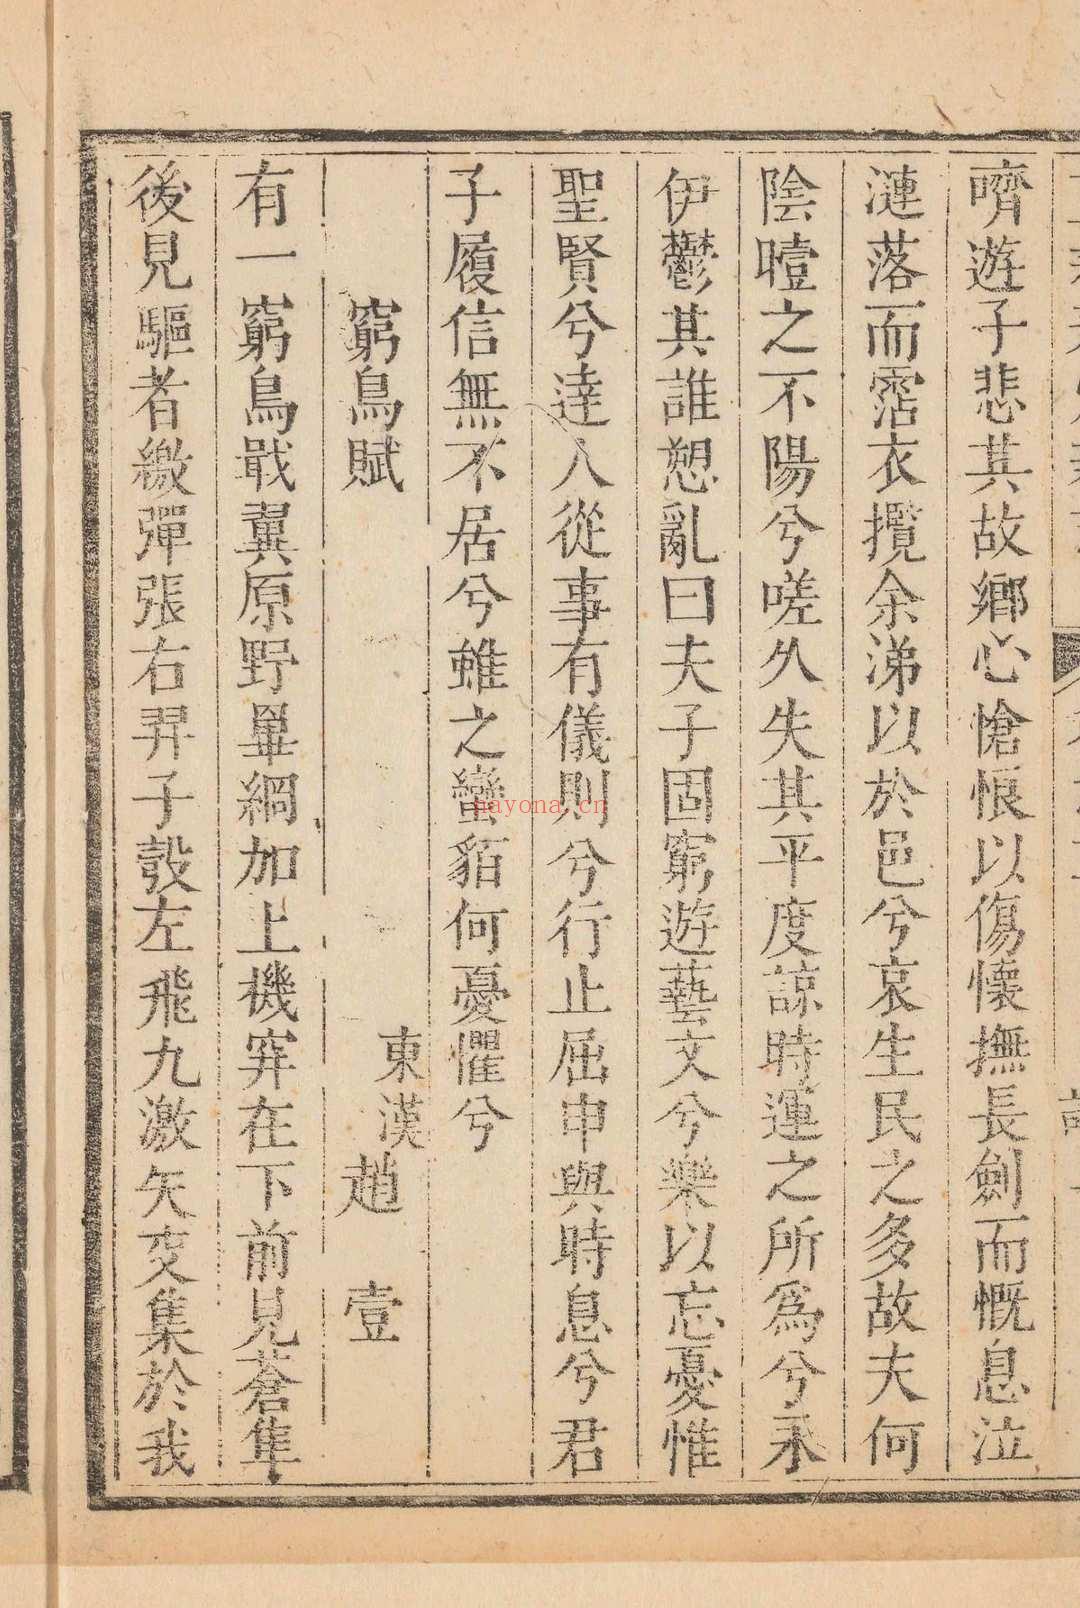 嚌遊子悲其故鄉心愴悢以傷懷撫長劍而慨息泣
漣落而霑衣攬余涕以於邑兮哀生民之多故夫何
陰曀之不陽兮嗟久失其平度諒時運之所爲兮永
伊鬱其誰愬亂曰夫子固窮遊藝文兮樂以忘憂惟
聖賢兮達人從事有儀則兮行止屈申與時息兮君
子履信無不居兮雖之蠻貊何憂懼兮
窮鳥賦
東漢趙壹
有一窮鳥戢翼原野罼網加上機穽在下前見蒼隼
後見驅者繳彈張右羿子彀左飛丸激矢交集於我
nayona.cn